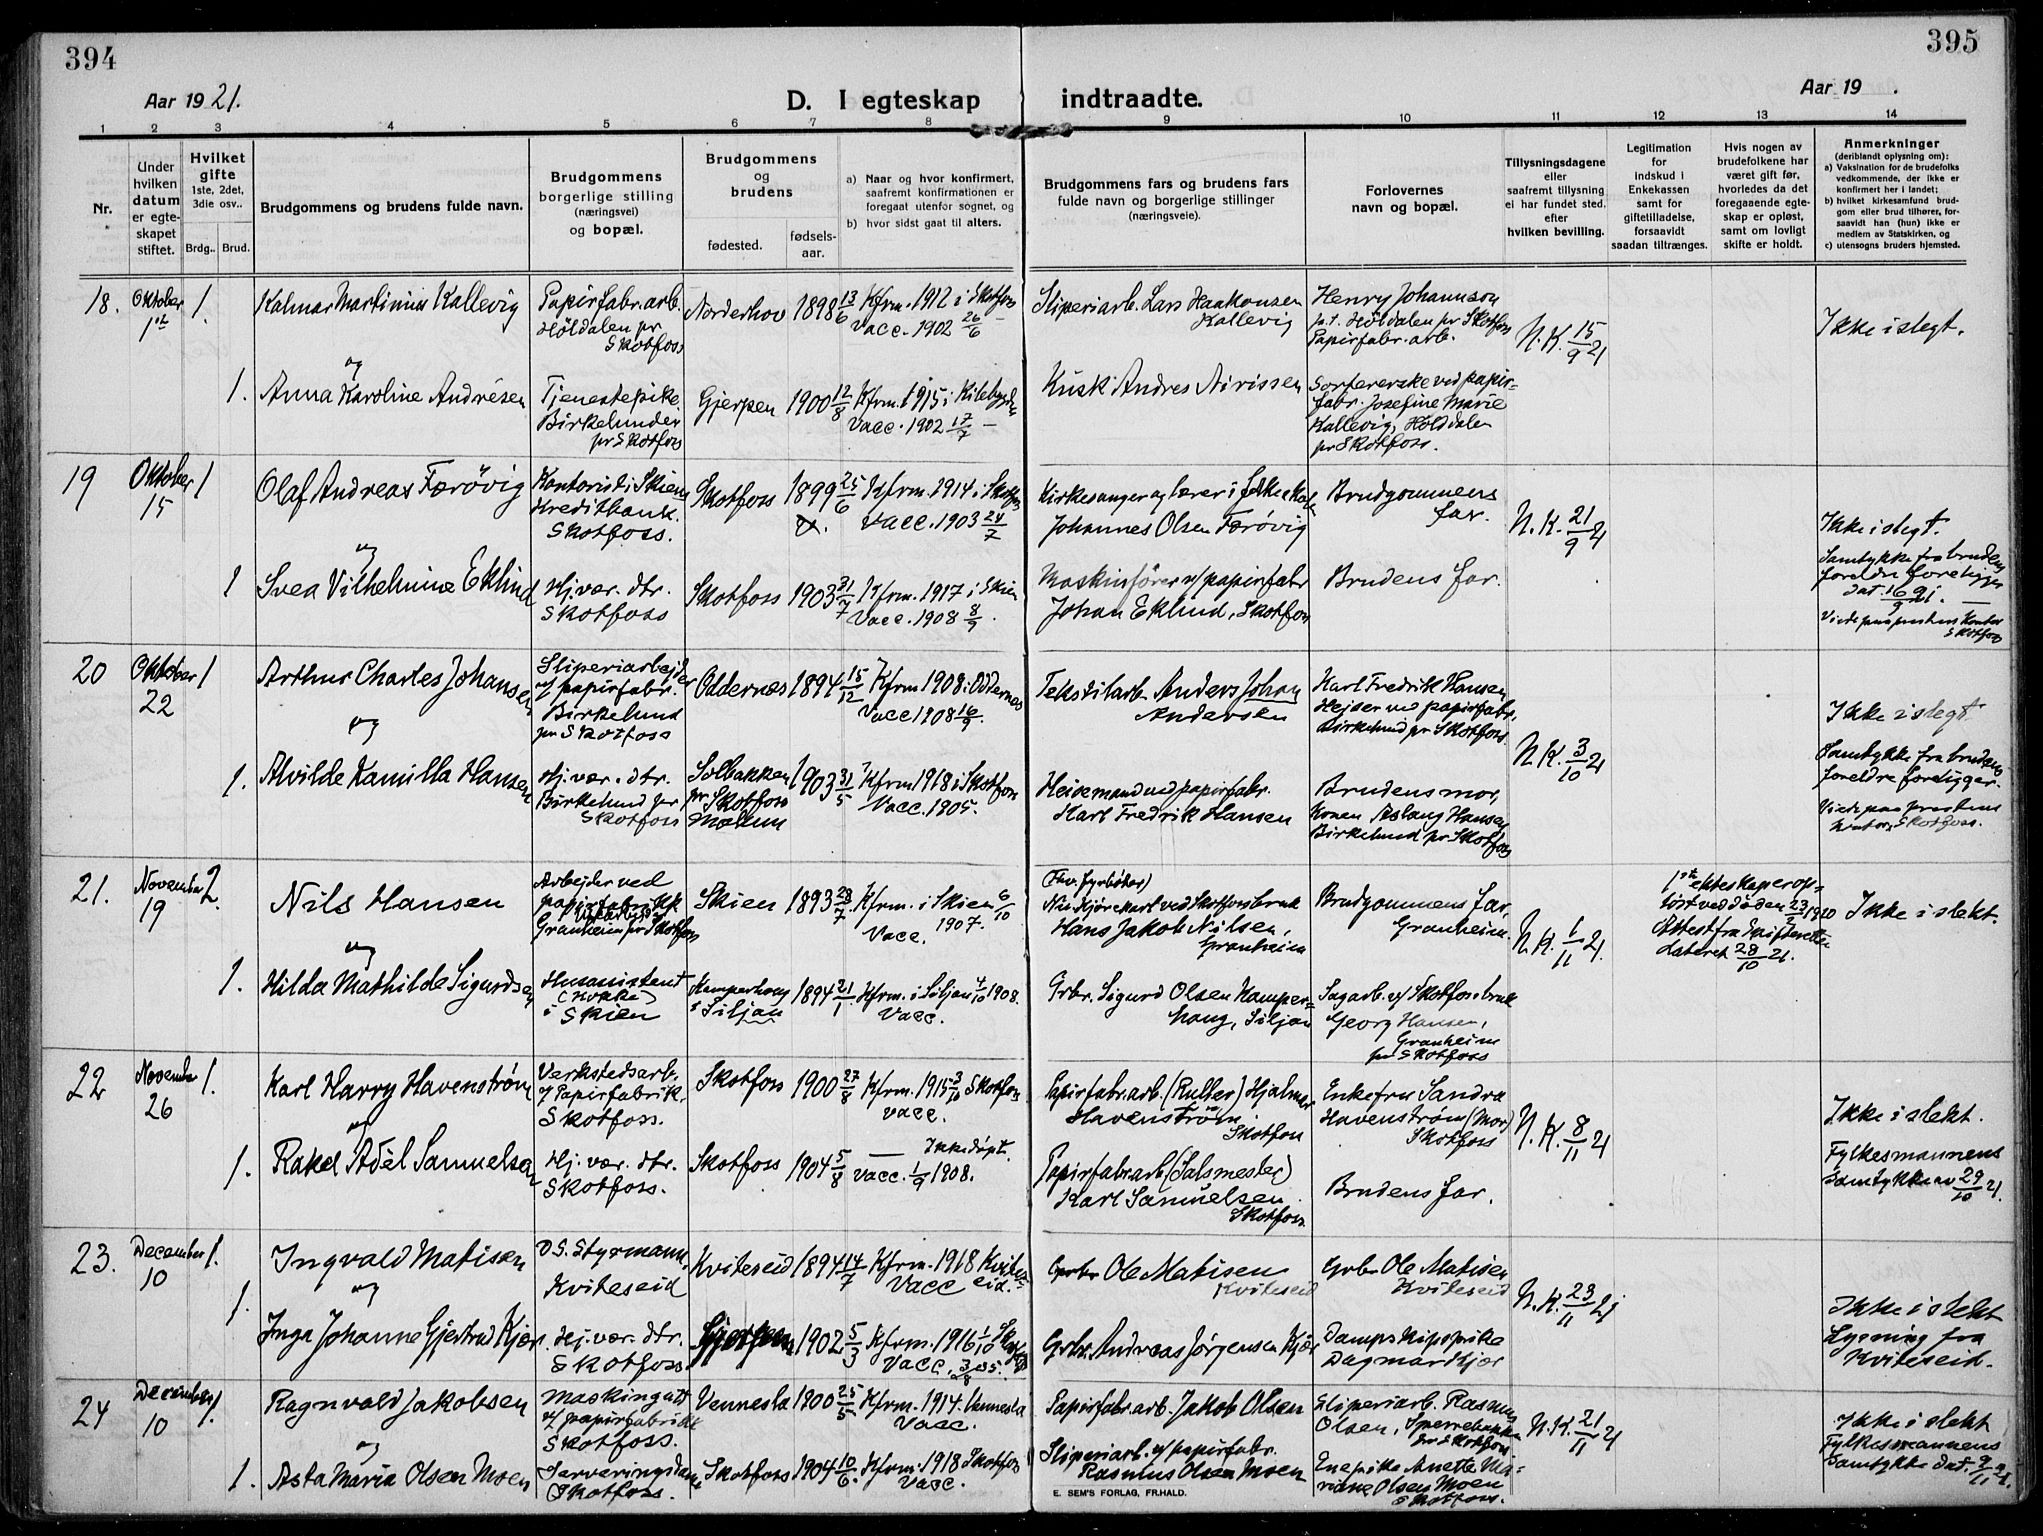 394
395
Aar 1921.
D. I egteskap indtraadte.
Aar 19 .
1 2 3 4 5 6 7 8 9 10 11 12 13 14
Nr.
Under
hvilken
datum
er egte-
skapet
stiftet.
Hvilket
gifte
1ste, 2det,
3die osv..
Brdg.. Brud.
Brudgommens og brudens fulde navn.
Brudgommens
borgerlige stilling
(næringsvei)
og bopæl.
Brudgommens
og
brudens
fødested.
fødsels-
aar.
a) Naar og hvor konfirmert,
saafremt konfirmationen er
foregaat utenfor sognet, og
b) hvor sidst gaat til alters.
Brudgommens fars og brudens fars
fulde navn og borgerlige stillinger
(næringsveie).
Forlovernes
navn og bopæl.
Tillysningsdagene
eller
saafremt tillysning
ei har fundet sted,
efter
hvilken bevilling.
Legitimation
for
indskud i
Enkekassen
samt for
giftetilladelse,
forsaavidt
saadan tiltrænges.
Hvis nogen av
brudefolkene har
været gift før,
hvorledes da det
foregaaende egte-
skap er opløst,
samt om lovligt
skifte er holdt.
Anmerkninger
(deriblandt oplysning om):
a) Vaksination for de brudefolks
vedkommende, der ikke er
konfirmert her i landet;
b) hvilket kirkesamfund brud-
gom eller brud tilhører, for-
saavidt han (hun) ikke er
medlem av Statskirken, og
c) utensogns bruders hjemsted.
18.
Oktober
1ste
1.
Kalmar Martinius Kallevig
Papirfabr.arb.
Höldalen pr
Skotfoss
Norderhov
1898 13/6
Kfrm. 1912 i Skotfoss
Vacc. 1902 26/6
Sliperiarb. Lars Haakonsen
Kallevig
Henry Johannson
p.t. Höldalen pr Skotfoss
Papirfabr. arb.
N.K. 15/9 21
Ikke i slegt.
og
1.
Anna Karoline Andrésen
Tjenestepike
Birkelunden
pr Skotfoss
Gjerpen
1900 12/8
Kfrm. 1915 i Kilebygden
Vacc. 1902 17/7
Kusk Andres Airissen
Sortererske ved papir-
fabr. Josefine Marie
Kallevig, Höldalen
pr Skotfoss.
19
Oktober
15
1
Olaf Andreas Færövig
Kontorist i Skiens
Kreditbank.
Skotfoss.
Skotfoss
1899 25/6
Kfrm. 1914 i Skotfoss
Vacc. 1903 24/7
Kirkesanger og lærer i folkeskole
Johannes Olsen Færövig
Brudgommens
far.
N.K. 21/9 21
Ikke i slegt.
Samtykke fra brudens
foreldre foreligger
dat. 16/9 21.
Viede paa prestens kontor
Skotfoss
og
1
Svea Vilhelmine Eklund
Hj.vær. dtr.
Skotfoss
Skotfoss
1903 31/7
Kfrm. 1917 i Skien
Vacc. 1908 8/9.
Maskinfører v/papirfabr
Johan Eklund, Skotfoss
Brudens far.
20
Oktober
22
1
Arthur Charles Johansen
Sliperiarbejder
v/ papirfabr.
Birkelund
pr Skotfoss
Oddernes
1894 15/12
Kfrm 1908 i Oddernes
Vacc 1908 16/9.
Tekstilarb. Anders Johan
Andersen
Karl Fredrik Hansen
Hejser ved papirfabr,
Birkelund pr Skotfoss.
N.K. 3/10 21
Ikke i slegt.
Samtykke fra brudens
foreldre foreligger.
Viede paa prestens
kontor, Skotfoss.
og
1.
Alvilde Kamilla Hansen
Hj.vær. dtr.
Birkelund pr
Skotfoss
Solbakken
pr Skotfoss
Mælum
1903 31/5
Kfrm 1918 i Skotfoss
Vacc. 1905.
Heisemand ved papirfabr.
Karl Fredrik Hansen
Brudens mor,
Konen Aslaug Hansen
Birkelund pr Skotfoss
21.
November
19
2.
Nils Hansen
Arbejder ved
papirfabrikk
Granheim pr Skotfoss
Skien
1893 28/7
Kfrm. i Skien 6/10
1907.
Vacc.
(Fhv. fyrbøter)
Nu kjørekarl ved Skotfossbruk
Hans Jakob Nilsen,
Granheim
Brudgommens far,
Granheim.
N.K. 1/11 21.
1ste ekteskap op-
løst ved døden 23/2 1920
Attest fra Skifteretten
dateret 28/10 21.
Ikke i slekt.
og
1.
Hilda Mathilde Sigurdsen
Husassistent
(kokke)
i Skien
Kamperhaug
i Siljan
1894 21/1
Kfrm. i Siljan 4/10 1908.
Vacc.
Grbr. Sigurd Olsen Kamper-
haug, Siljan
Sagarb. v/ Skotfoss bruk
Georg Hansen,
Granheim
pr Skotfoss
22
November
26
1.
Karl Harry Havenström
Verkstedsarb.
v/ Papirfabrik.
Skotfoss.
Skotfoss
1900 27/8
Kfrm. 1915 3/10 Skotfoss
Vacc.
Papirfabr.arb. (Ruller) Hjalmar
Havenström.
Skotfoss
Enkefru Sandra
Havenström (Mor)
Skotfoss
N.K. 8/11 21
Ikke i slekt.
Fylkesmannens
samtykke av 29/10 21.
og
1.
Rakel Adèl Samuelsen
Hj. vær. dtr.
Skotfoss.
Skotfoss
1904 5/8
Ikke døpt.
Vacc. 1/9 1908.
Papirfabr.arb (Salsmester)
Karl Samuelsen
Skotfoss.
Brudens far.
23.
December
10
1.
Ingvald Matisen
D.S. Styrmann,
Kviteseid
Kviteseid
1894 14/7
Kfrm. 1918 Kvites-
eid.
Vacc
Grbr Ole Matisen
Kviteseid
Grbr Ole Matisen
Kviteseid
N.K. 23/11 21
Ikke i slekt
Lysning fra
Kviteseid.
og
1.
Inga Johanne Gjestrud Kjær
Hj. vær. dtr.
Skotfoss
Gjerpen
1902 5/3
Kfrm. 1916 1/10
Vacc. 3/8 05.
Grbr. Andreas Jørgensen Kjær
Dampskipspike
Dagmar Kjær
24
December
10
1.
Ragnvald Jakobsen
Maskingutt
v/ papirfabrikk
Skotfoss.
Vennesla
1900 25/5
Kfrm. 1914. Vennesla
Vacc.
Papirfabr.arb. Jakob Olsen
Sliperiarb. Rasmus
Olsen, Sperrebakken
pr Skotfoss
N.K. 21/11 21
Ikke i slekt
Fylkesmannens
Samtykke dat. 9/11 21.
og
1.
Asta Maria Olsen Moen
Serveringsdame
Skotfoss.
Skotfoss
1904 10/6.
Kfrm. 1918 Skotfoss
Vacc.
Sliperiarb. v/ papirfabr.
Rasmus Olsen Moen
Enepike Anette Ma-
riane Olsen Moen
Skotfoss.
E. SEM'S FORLAG, FR.HALD.